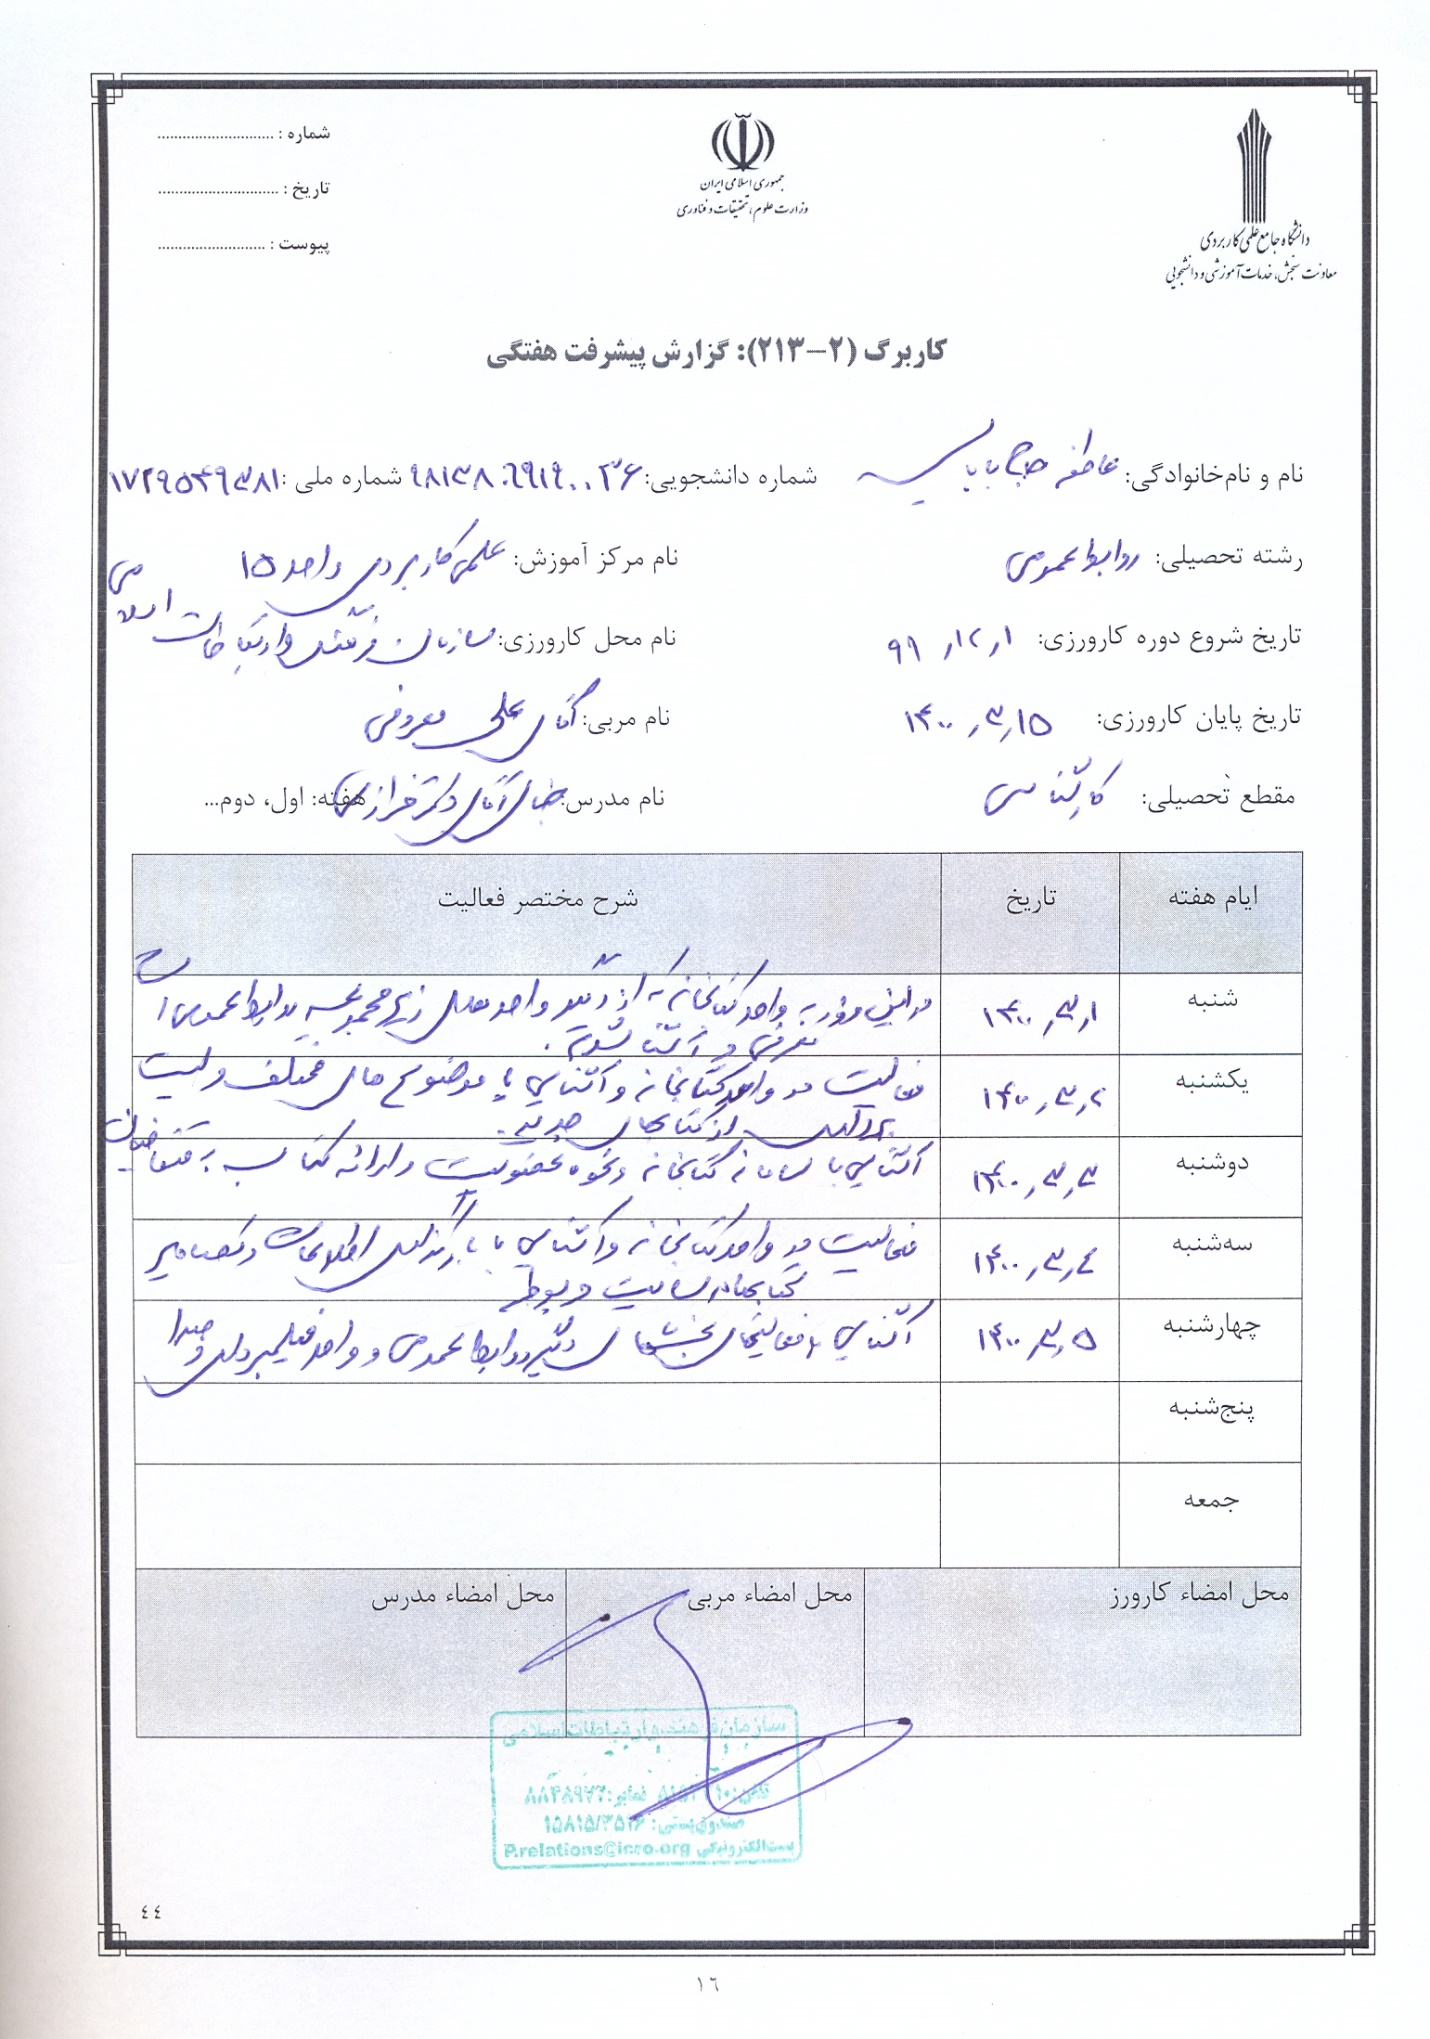 شماره : ............................
تاریخ : ............................
پیوست : ..........................
جمهوری اسلامی ایران
وزارت علوم، تحقیقات و فناوری
دانشگاه جامع علمی کاربردی
معاونت سنجش، خدمات آموزشی و دانشجویی
کاربرگ (۲-۲۱۳): گزارش پیشرفت هفتگی
نام و نام‌خانوادگی: عاطفه حاج بابایی شماره دانشجویی: شماره ملی :
رشته تحصیلی: روابط عمومی نام مرکز آموزش: علمی کاربردی واحد ۱۵
تاریخ شروع دوره کارورزی: ۹۹٫۱۲٫۱ نام محل کارورزی: سازمان فرهنگ و ارتباطات اسلامی
تاریخ پایان کارورزی: ۱۴۰۰٫۳٫۱۵ نام مربی: آقای علی معروفی
مقطع تحصیلی: کارشناسی نام مدرس: جناب آقای دکتر فرازی هفته: اول، دوم...
ایام هفته تاریخ شرح مختصر فعالیت
شنبه ۱۴۰۰٫۳٫۱ در این روز به واحد کتابخانه که از دیگر واحد های زیر مجموعه روابط عمومی است
معرفی و آشنا شدم.
یکشنبه ۱۴۰۰٫۳٫۲ فعالیت در واحد کتابخانه و آشنایی با موضوع های مختلف و لیست
برداری از کتابهای جدید.
دوشنبه ۱۴۰۰٫۳٫۳ آشنایی با سامانه کتابخانه و نحوه عضویت و ارائه کتاب به متقاضیان
سه‌شنبه ۱۴۰۰٫۳٫۴ فعالیت در واحد کتابخانه و آشنایی با بارگذاری اطلاعات و تصاویر
کتابها در سایت مربوطه
چهارشنبه ۱۴۰۰٫۳٫۵ آشنایی با فعالیتهای بخشهای دیگر روابط عمومی و واحد فیلمبرداری و صدا
پنج‌شنبه
جمعه
محل امضاء کارورز محل امضاء مربی محل امضاء مدرس
سازمان فرهنگ و ارتباطات اسلامی
تلفن: نمابر:
صندوق پستی: ۱۵۸۱۵/۳۵۱۶
پست الکترونیکی P.relations@icro.org
٤٤
١٦